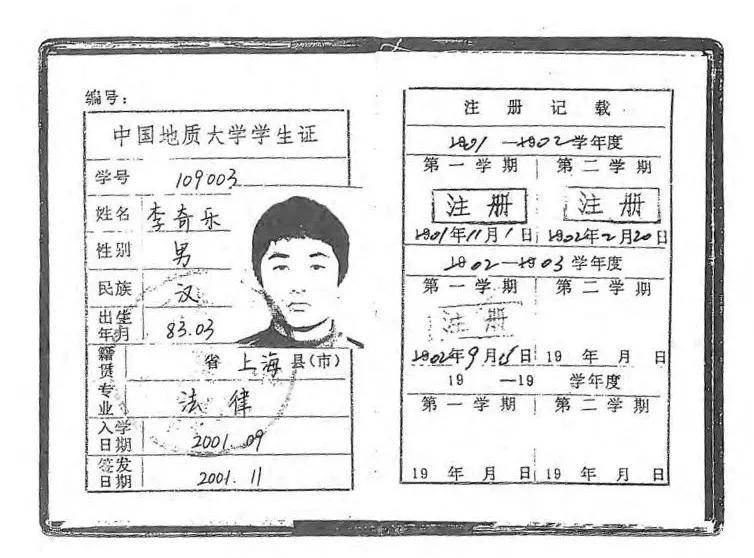 编号:
中国地质大学学生证
学号 109003
姓名 李奇乐
性别 男
民族 汉
出生年月 83.03
籍贯 省 上海 县(市)
专业 法律
入学日期 2001.09
签发日期 2001.11
注册记载
1901—1902学年度
第一学期 第二学期
注册 注册
1901年11月1日 1902年2月20日
1902—1903学年度
第一学期 第二学期
注册
1902年9月15日 19 年 月 日
19 —19 学年度
第一学期 第二学期
19 年 月 日 19 年 月 日